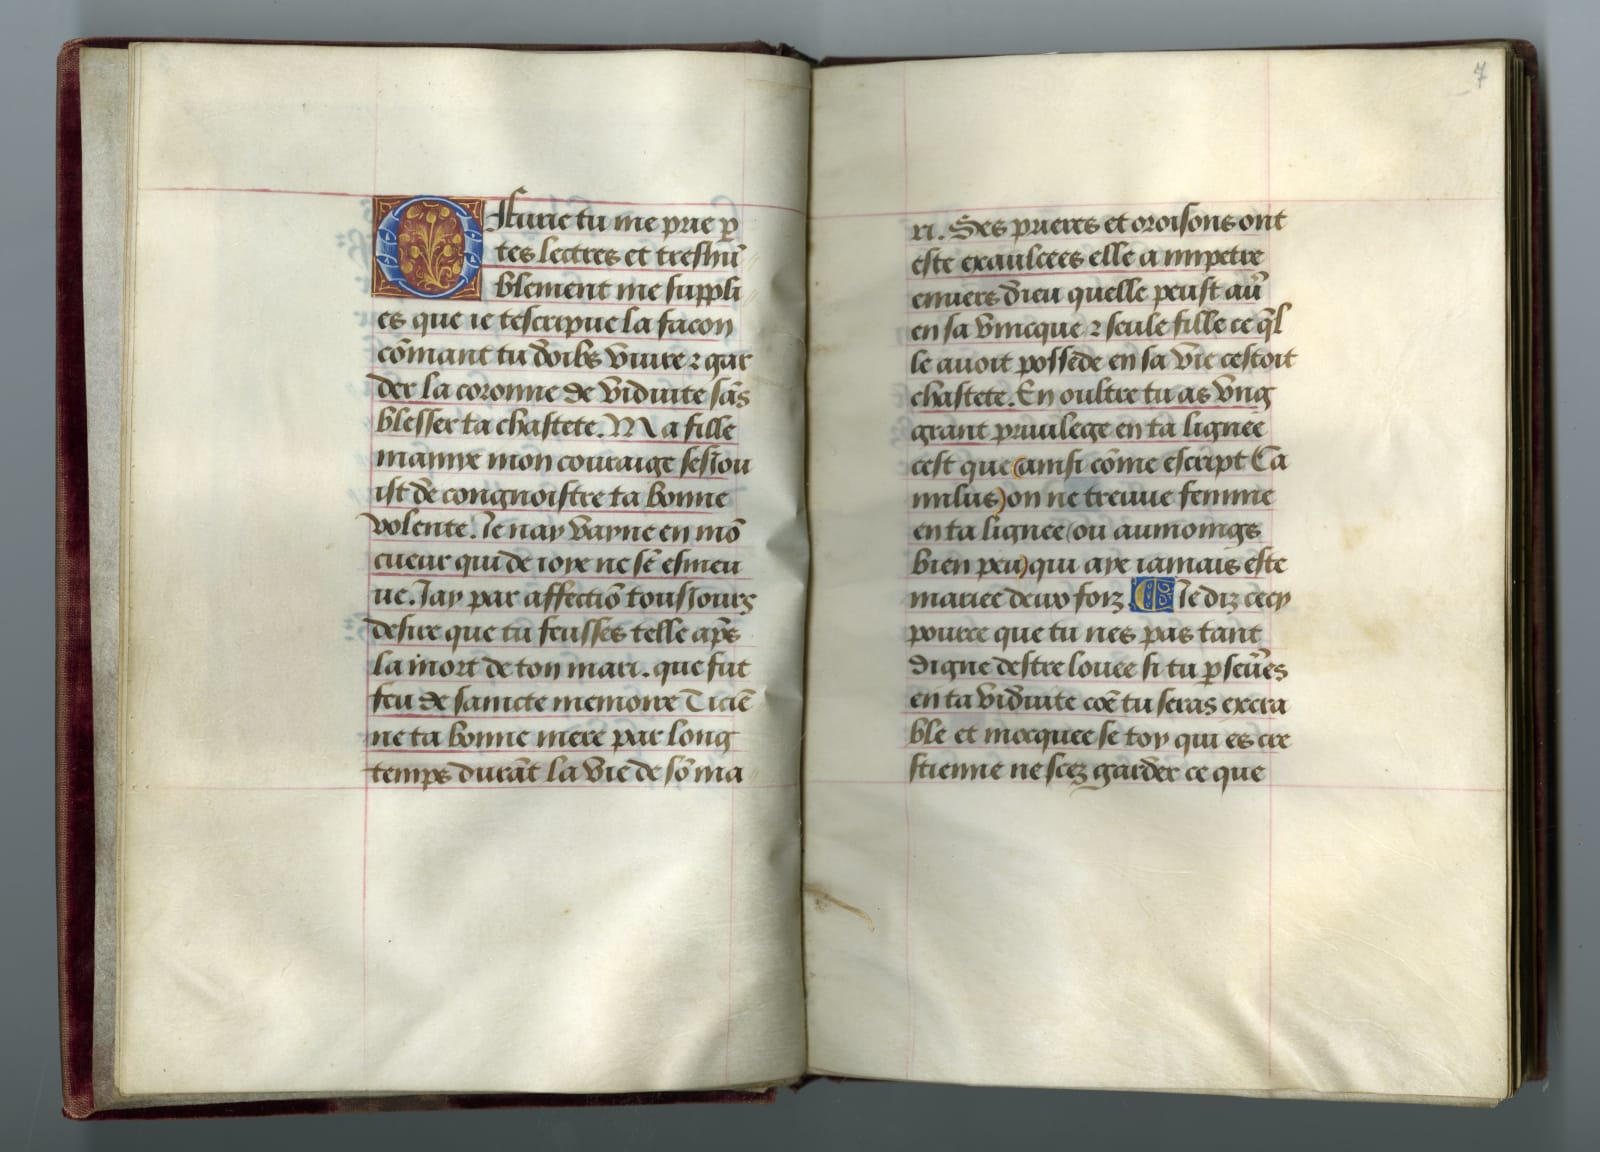 O Furie tu me prie p
tes lectres et treshũ
blement me suppli
es que ie tescripue la facon
cõmant tu doibs viure ⁊ gar
der la coronne de viduite sãs
blesser ta chastete. Ma fille
mamye mon couraige sesiou
ist de congnoistre ta bonne
volente. Ie nay vayne en mõ
cueur qui de ioye ne sẽ esmeu
ue. Iay par affectiõ tousiours
desire que tu feusses telle ap̃s
la mort de ton mari. que fut
feu de saincte memoire Ticiẽ
ne ta bonne mere par long
temps durãt la vie de sõ ma
7
ri. Ses prieres et oroisons ont
este exaulcees elle a impetre
enuers dieu quelle peust au᷑
en sa vnicque ⁊ seule fille ce q̃l
le auoit possede en sa vie cestoit
chastete. En oultre tu as vng
grant priuilege en ta lignee
cest que (ainsi cõme escript Ca
milus) on ne treuue femme
en ta lignee (ou aumoings
bien peu) qui aye iamais este
mariee deux foiz Ie diz cecy
pource que tu nes pas tant
digne destre louee si tu pseu᷑es
en ta viduite coẽ tu seras execra
ble et mocquee se toy qui es cre
stienne ne scez garder ce que